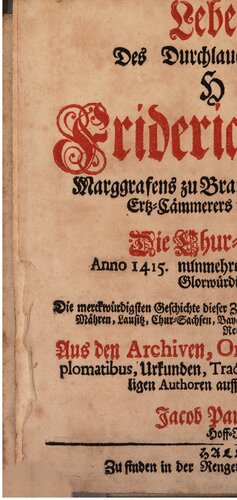 Lebe
Des Durchlau
H
Frideric
Marggrafens zu Bra
Ertz-Cämmerers
Die Chur-
Anno 1415. nunmehr
Glorwürdi
Die merckwürdigsten Geschichte dieser Z
Mähren, Lausitz, Chur-Sachsen, Bay
Re
Aus den Archiven, Or
plomatibus, Urkunden, Trad
ligen Authoren auff
Jacob Pau
Hoff-
HAL
Zu finden in der Renge